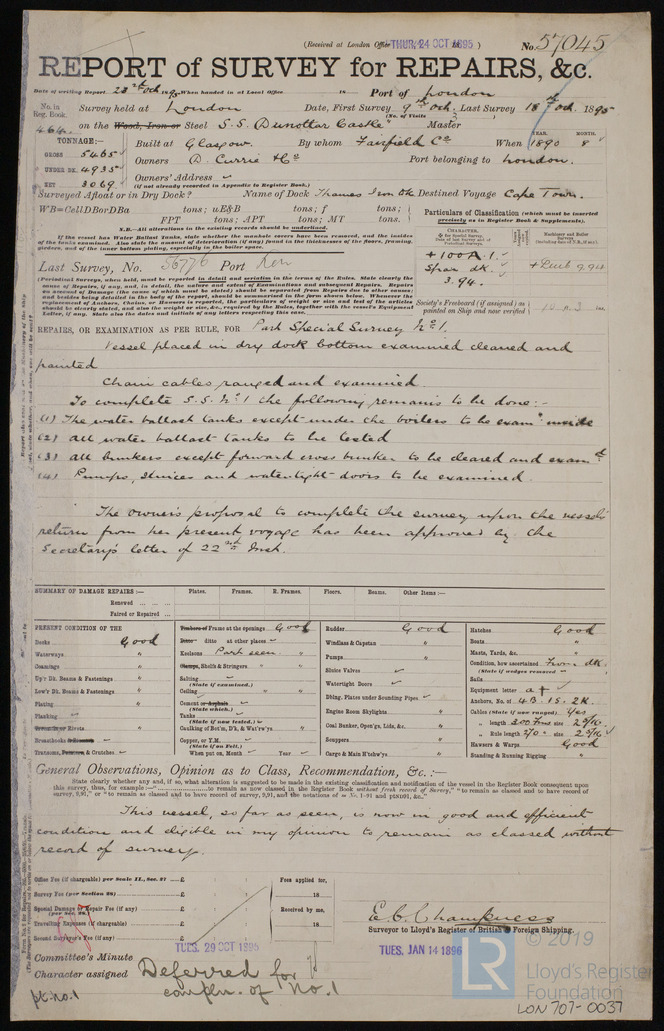 (Received at London Office THUR. 24 OCT 1895 )
No. 57045
REPORT of SURVEY for REPAIRS, &c.
Date of writing Report 23rd Oct 1895 When handed in at Local Office 18 Port of London
No. in Reg. Book. Survey held at London Date, First Survey 9th Oct. Last Survey 18th Oct. 1895
(No. of Visits 3)
464 on the Wood, Iron or Steel S.S. Dunottar Castle Master
TONNAGE:— Built at Glasgow. By whom Fairfield Co When 1890 8
YEAR. MONTH.
GROSS 5465 Owners D. Currie & Co Port belonging to London.
UNDER DK. 4935 Owners' Address
NET 3069 (if not already recorded in Appendix to Register Book.)
Surveyed Afloat or in Dry Dock? Name of Dock Thames Iron Wk Destined Voyage Cape Town.
WB=CellDBorDBa tons; uE&B tons; f tons;
FPT tons; APT tons; MT tons.
N.B.—All alterations in the existing records should be underlined.
If the vessel has Water Ballast Tanks, state whether the manhole covers have been removed, and the insides
of the tanks examined. Also state the amount of deterioration (if any) found in the thicknesses of the floors, framing,
Particulars of Classification (which must be inserted
precisely as in Register Book & Supplements).
+ 100 A 1.
Spar dk.
3.94.
Last Survey, No. 56776 Port
(Periodical Surveys, when held, must be reported in detail and seriatim in the terms of the Rules. State clearly the
cause of Repairs, if any, and, in detail, the nature and extent of Examinations and subsequent Repairs.
Letter, if any. State also the dates and initials of any letters respecting this case.
Society's Freeboard (if assigned) as
painted on Ship and now verified
REPAIRS, OR EXAMINATION AS PER RULE, FOR Part Special Survey No 1.
Vessel placed in dry dock bottom examined cleaned and
painted
Chain cables ranged and examined.
To complete S.S. No 1 the following remains to be done:-
(1) The water ballast tanks except under the boilers to be exam'd inside
(2) all water ballast tanks to be tested
(3) all bunkers except forward cross bunker to be cleared and exam'd.
(4) Pumps, sluices and watertight doors to be examined.
The owner's proposal to complete the survey upon the vessel's
return from her present voyage has been approved by the
Secretary's letter of 22nd Inst.
SUMMARY OF DAMAGE REPAIRS:— Plates. Frames. R. Frames. Floors. Beams. Other Items:—
Renewed
Faired or Repaired
PRESENT CONDITION OF THE
Decks Good
Waterways "
Coamings "
Up'r Dk. Beams & Fastenings "
Low'r Dk. Beams & Fastenings "
Plating "
Planking
Treenails or Rivets "
Breasthooks
Transoms, Pointers, & Crutches
Timbers or Frame at the openings Good
Ditto ditto at other places
Keelsons Part seen. "
Clamps, Shelfs & Stringers "
Salting
(State if examined.)
Ceiling "
Cement or Asphalt
(State which.)
Tanks
(State if now tested.)
Caulking of Bot'm, D'k, & Wat'rw'ys
Copper, or Y.M.
(State if on Felt.)
When put on, Month Year
Rudder Good
Windlass & Capstan "
Pumps "
Sluice Valves
Watertight Doors
Dblng. Plates under Sounding Pipes
Engine Room Skylights "
Coal Bunker, Open'gs, Lids, &c. "
Scuppers "
Cargo & Main H'tchw'ys "
Hatches Good
Boats "
Masts, Yards, &c. "
Condition, how ascertained From dk.
(State if wedges removed
Sails
Equipment letter a †
Anchors, No. of 4B. 1S. 2K.
Cables (state if now ranged) Yes
" length 300 Fms size
" Rule length size
Hawsers & Warps Good
Standing & Running Rigging "
General Observations, Opinion as to Class, Recommendation, &c.:—
State clearly whether any, and if so, what alteration is suggested to be made in the existing classification and notification of the vessel in the Register Book consequent upon
this survey, thus, for example:—"to remain as now classed in the Register Book without fresh record of Survey," "to remain as classed and to have record of
survey, 9,91," or "to remain as classed and to have record of survey, 9,91, and the notations of
This vessel, so far as seen, is now in good and efficient
condition and eligible in my opinion to remain as classed without
record of survey.
Office Fee (if chargeable) per Scale II., Sec. 27 £
Survey Fee (per Section 28) £
Special Damage or Repair Fee (if any) £
(per Sec. 28.)
Travelling Expenses (if chargeable) £
Second Surveyor's Fee (if any) £
Fees applied for,
18
Received by me,
18
E. C. Champness
Surveyor to Lloyd's Register of British & Foreign Shipping.
Committee's Minute TUES. 29 OCT 1895 TUES. JAN 14 1896
Character assigned Deferred for
compln. of No. 1
pt. no. 1
© 2019
LR
Lloyd's Register
Foundation
LON 707-0037